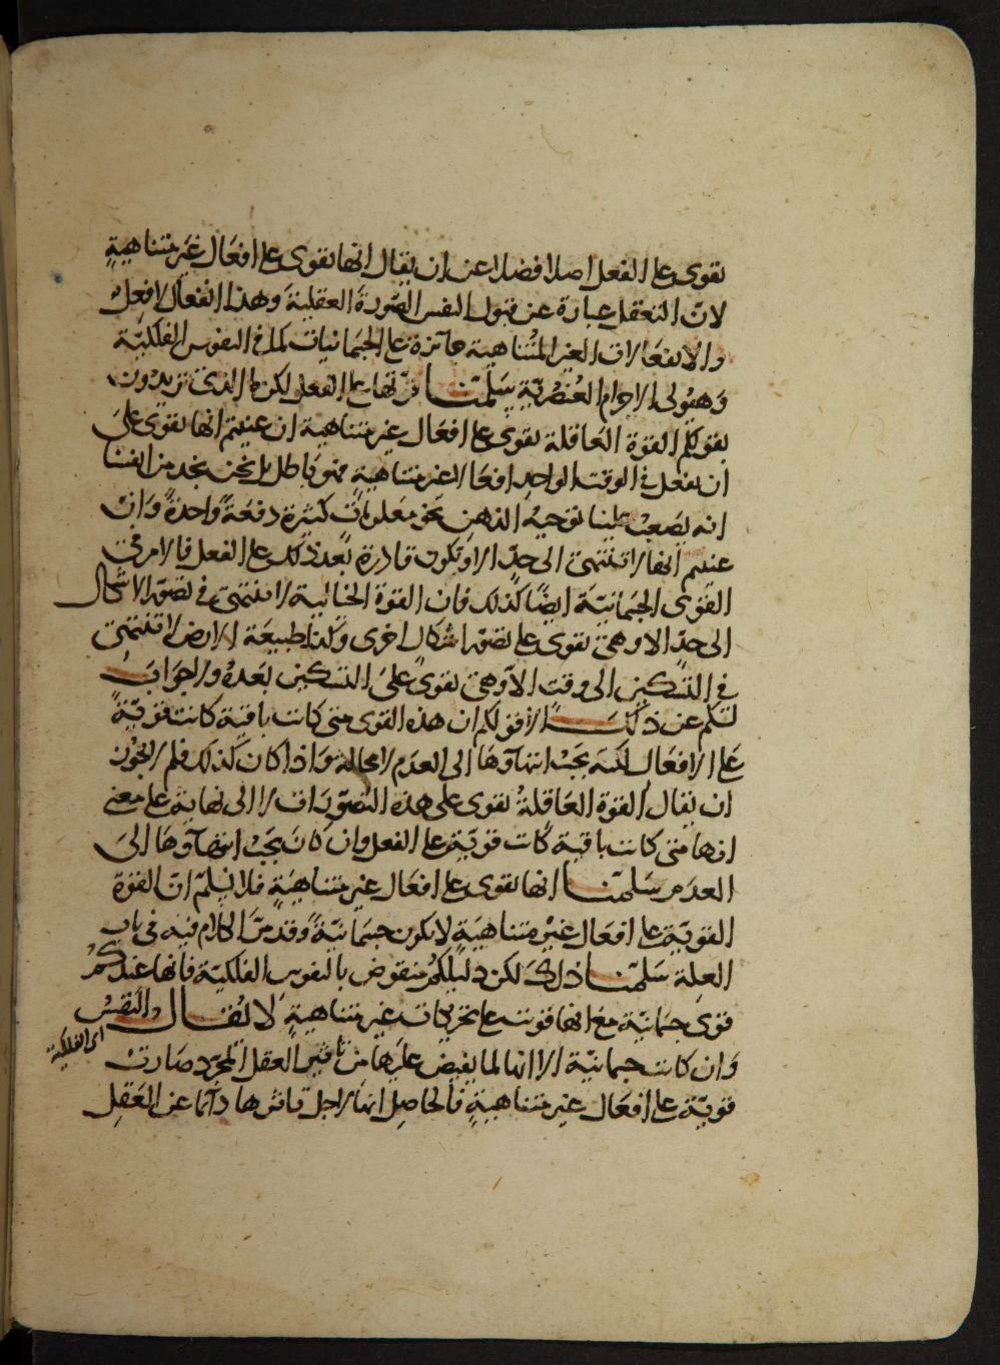 تقوى على الفعل اصلا فضلا عن ان يقال انها تقوى على افعال غير متناهية
لان التعقل عبارة عن قبول النفس الصورة العقلية وهذا انفعال لا فعل
والانفعالات الغير المتناهية جائزة على الجسمانيات كما فى النفوس الفلكية
وهيولى الاجرام العنصرية سلمنا قوتها على الفعل لكن ما الذى تريدون
بقولكم القوة العاقلة تقوى على افعال غير متناهية ان عنيتم انها تقوى على
ان تفعل فى الوقت الواحد افعالا غير متناهية فهو باطل بل نحن نجد من انفسنا
انه يصعب علينا توجيه الذهن نحو معلومات كثيرة دفعة واحدة وان
عنيتم انها لا تنتهى الى حد الا وتكون قادرة بعد ذلك على الفعل فالامر فى
القوى الجسمانية ايضا كذلك فان القوة الخيالية لا تنتهى فى تصور الاشكال
الى حد الا وهى تقوى على تصور اشكال اخرى وكذا طبيعة الارض لا تنتهى
فى التسكين الى وقت الا وهى تقوى على التسكين بعده ولا جواب
لكم عن ذلك الا قولكم ان هذه القوى متى كانت باقية كانت قوية
على الافعال لكنه يجب انتهاؤها الى العدم لا محالة واذا كان كذلك فلم لا يجوز
ان يقال القوة العاقلة تقوى على هذه التصورات لا الى نهاية على معنى
انها متى كانت باقية كانت قوية على الفعل وان كان يجب انتهاؤها الى
العدم سلمنا انها تقوى على افعال غير متناهية فلا نسلم ان القوة
القوية على افعال غير متناهية لا تكون جسمانية وقد مر الكلام فيه فى باب
العلة سلمنا ذلك لكن دليلكم منقوض بالنفوس الفلكية فانها عندكم
قوى جسمانية مع انها قويت على تحريكات غير متناهية لا يقال والنفس
اى الفلكية
وان كانت جسمانية الا انها لما يفيض عليها من تاثير العقل المجرد صارت
قوية على افعال غير متناهية فالحاصل انها لاجل تاثرها دائما عن العقل